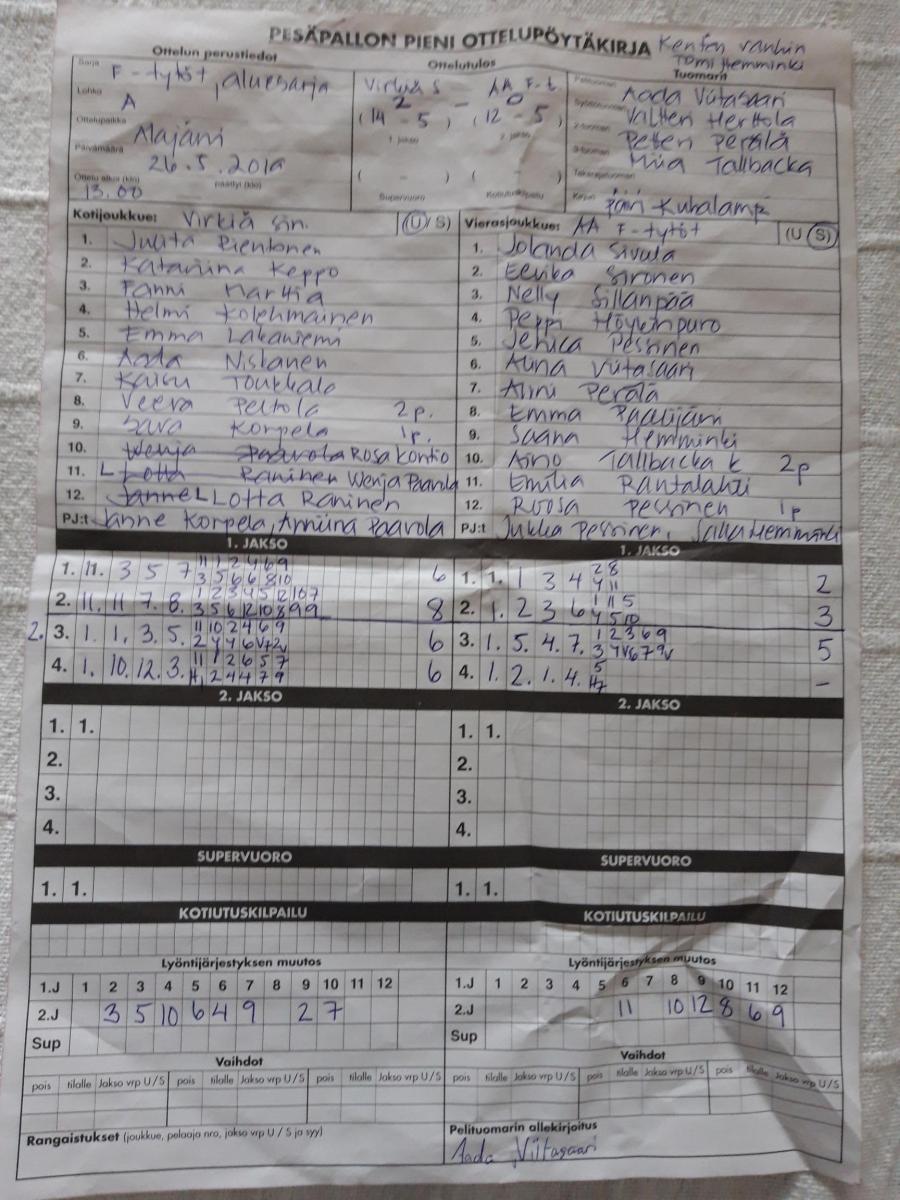 PESÄPALLON PIENI OTTELUPÖYTÄKIRJA
Kentän vanhin
Tomi Hemminki
Ottelun perustiedot
Ottelutulos
Tuomarit
Sarja F-tytöt, aluesarja
Lohko A
Ottelupaikka Alajärvi
Päivämäärä 26.5.2019
Ottelu alkoi (klo) 13.00 päättyi (klo)
Virkiä S AA F-t
2 - 0
(14 - 5) (12 - 5)
1. jakso 2. jakso
( - ) ( - )
Supervuoro Kotiutuskilpailu
Aada Viitasaari
Valtteri Herttola
Petteri Perälä
Miia Tallbacka
Kirjuri Päivi Kuhalampi
Kotijoukkue: Virkiä sin. (U / S)
1. Julita Pientonen
2. Katariina Keppo
3. Fanni Harttia
4. Helmi Kolehmainen
5. Emma Lakaniemi
6. Aada Niskanen
7. Kaisu Toukkala
8. Veera Peltola 2p.
9. Sara Korpela 1p.
10. Wenja Paavola Rosa Kontio
11. L Lotta Raninen Wenja Paavola
12. Janne L Lotta Raninen
PJ:t Janne Korpela, Anniina Paavola
Vierasjoukkue: AA F-tytöt (U / S)
1. Jolanda Sivula
2. Eevika Sironen
3. Nelly Sillanpää
4. Peppi Höykinpuro
5. Jenica Pesonen
6. Aura Viitasaari
7. Aini Perälä
8. Emma Paalijärvi
9. Saana Hemminki
10. Aino Tallbacka K 2p
11. Emilia Rantalahti
12. Roosa Pessinen 1p
PJ:t Jukka Pessinen, Salla Hemminki
1. JAKSO
1. 11. 3 5 7 11 1 2 4 6 9 6
3 5 6 6 8 10
2. 11. 11 7. 8. 1 2 3 4 5 12 10 7 8
3 5 6 12 10 8 9 9
2. 3. 1. 1. 3. 5. 11 10 2 4 6 9 6
4. 1. 10. 12. 3. 11 1 2 6 5 7 6
2 4 4 7 9
1. JAKSO
1. 1. 1 3 4 2 8 2
4 11
2. 1. 2 3 6 1 11 5 3
4 5 10
3. 1. 5. 4. 7. 1 2 3 6 9 5
4. 1. 2. 1. 4. 5 –
2. JAKSO
1. 1.
2.
3.
4.
2. JAKSO
1. 1.
2.
3.
4.
SUPERVUORO
1. 1.
SUPERVUORO
1. 1.
KOTIUTUSKILPAILU
KOTIUTUSKILPAILU
Lyöntijärjestyksen muutos
1.J 1 2 3 4 5 6 7 8 9 10 11 12
2.J 3 5 10 6 4 9 2 7
Sup
Lyöntijärjestyksen muutos
1.J 1 2 3 4 5 6 7 8 9 10 11 12
2.J 11 10 12 8 6 9
Sup
Vaihdot
pois tilalle Jakso vrp U / S pois tilalle Jakso vrp U / S pois tilalle Jakso vrp U / S
Vaihdot
pois tilalle Jakso vrp U / S pois tilalle Jakso vrp U / S pois tilalle Jakso vrp U / S
Rangaistukset (joukkue, pelaaja nro, jakso vrp U / S ja syy)
Pelituomarin allekirjoitus
Aada Viitasaari